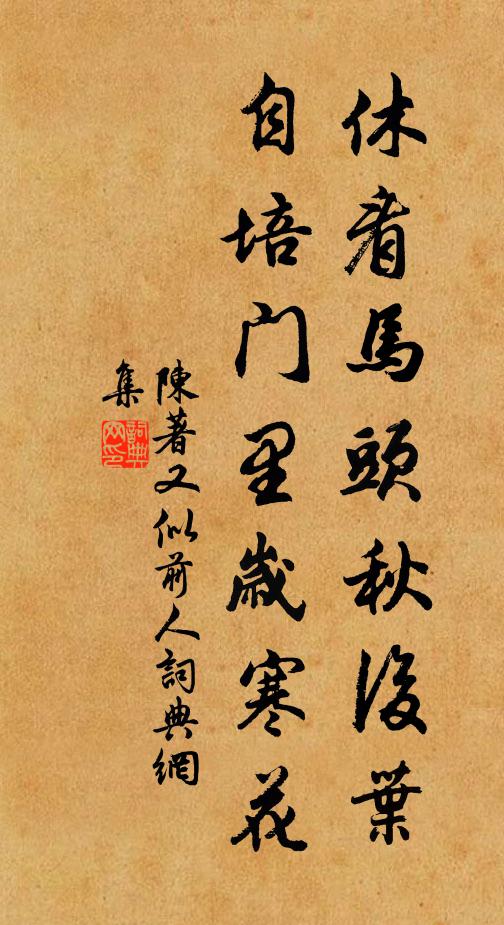 休看馬頭秋後葉
自培門里歲寒花
陳著又似前人詞典網
集
詞典
网印